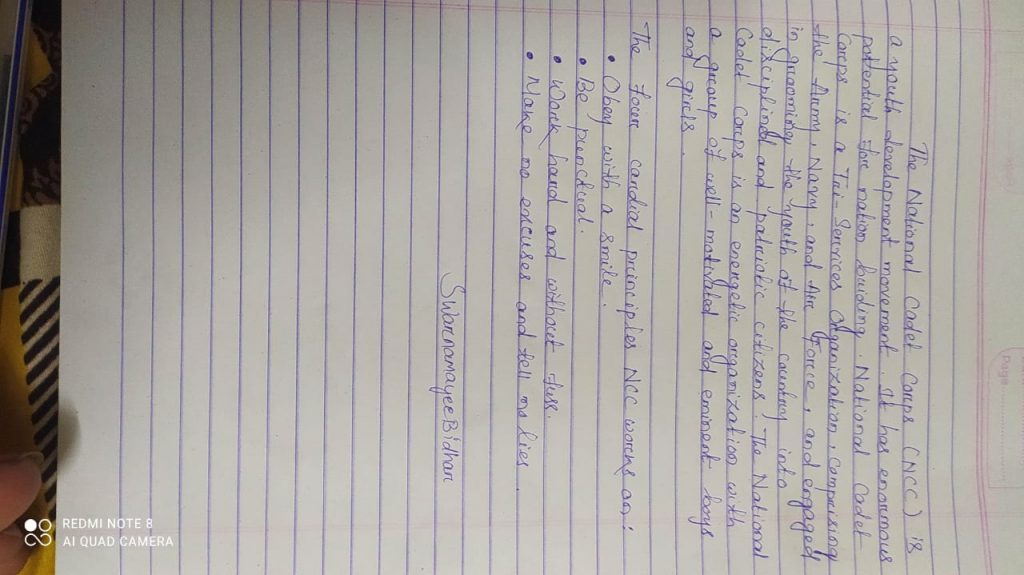 Page
The National Cadet Corps (NCC) is
a youth development movement. It has enormous
potential for nation buiding. National Cadet
Corps is a Tri-Services Organization, Comprising
the Army, Navy, and Air Force, and engaged
in grooming the youth of the country into
disciplined and patriotic citizens! The National
Cadet Corps is an energetic organization with
a group of well-motivated and eminent boys
and girls.
The four candial principles NCC works on:
• Obey with a smile.
• Be punctual.
• Work hard and without fuss.
• Make no excuses and tell no lies.
Swarnamayee Bidhar
REDMI NOTE 8
AI QUAD CAMERA